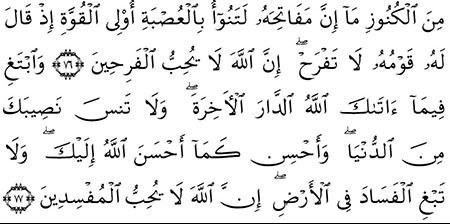 مِنَ ٱلْكُنُوزِ مَآ إِنَّ مَفَاتِحَهُۥ لَتَنُوٓأُ بِٱلْعُصْبَةِ أُو۟لِى ٱلْقُوَّةِ إِذْ قَالَ
لَهُۥ قَوْمُهُۥ لَا تَفْرَحْ ۖ إِنَّ ٱللَّهَ لَا يُحِبُّ ٱلْفَرِحِينَ ﴿٧٦﴾ وَٱبْتَغِ
فِيمَآ ءَاتَىٰكَ ٱللَّهُ ٱلدَّارَ ٱلْءَاخِرَةَ ۖ وَلَا تَنسَ نَصِيبَكَ
مِنَ ٱلدُّنْيَا ۖ وَأَحْسِن كَمَآ أَحْسَنَ ٱللَّهُ إِلَيْكَ ۖ وَلَا
تَبْغِ ٱلْفَسَادَ فِى ٱلْأَرْضِ ۖ إِنَّ ٱللَّهَ لَا يُحِبُّ ٱلْمُفْسِدِينَ ﴿٧٧﴾